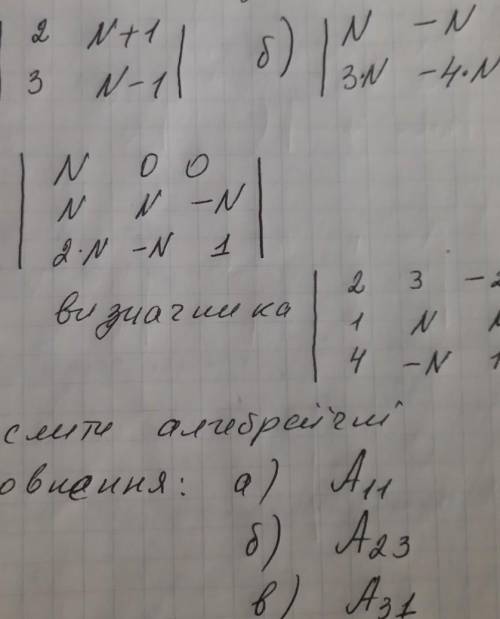 | 2 N+1 | б) | N -N
| 3 N-1 | | 3·N -4·N
| N 0 0 |
| N N -N |
| 2·N -N 1 |
визначника | 2 3 -2
| 1 N
| 4 -N 1
слити алгебраїчні
овнення: а) A11
б) A23
в) A31